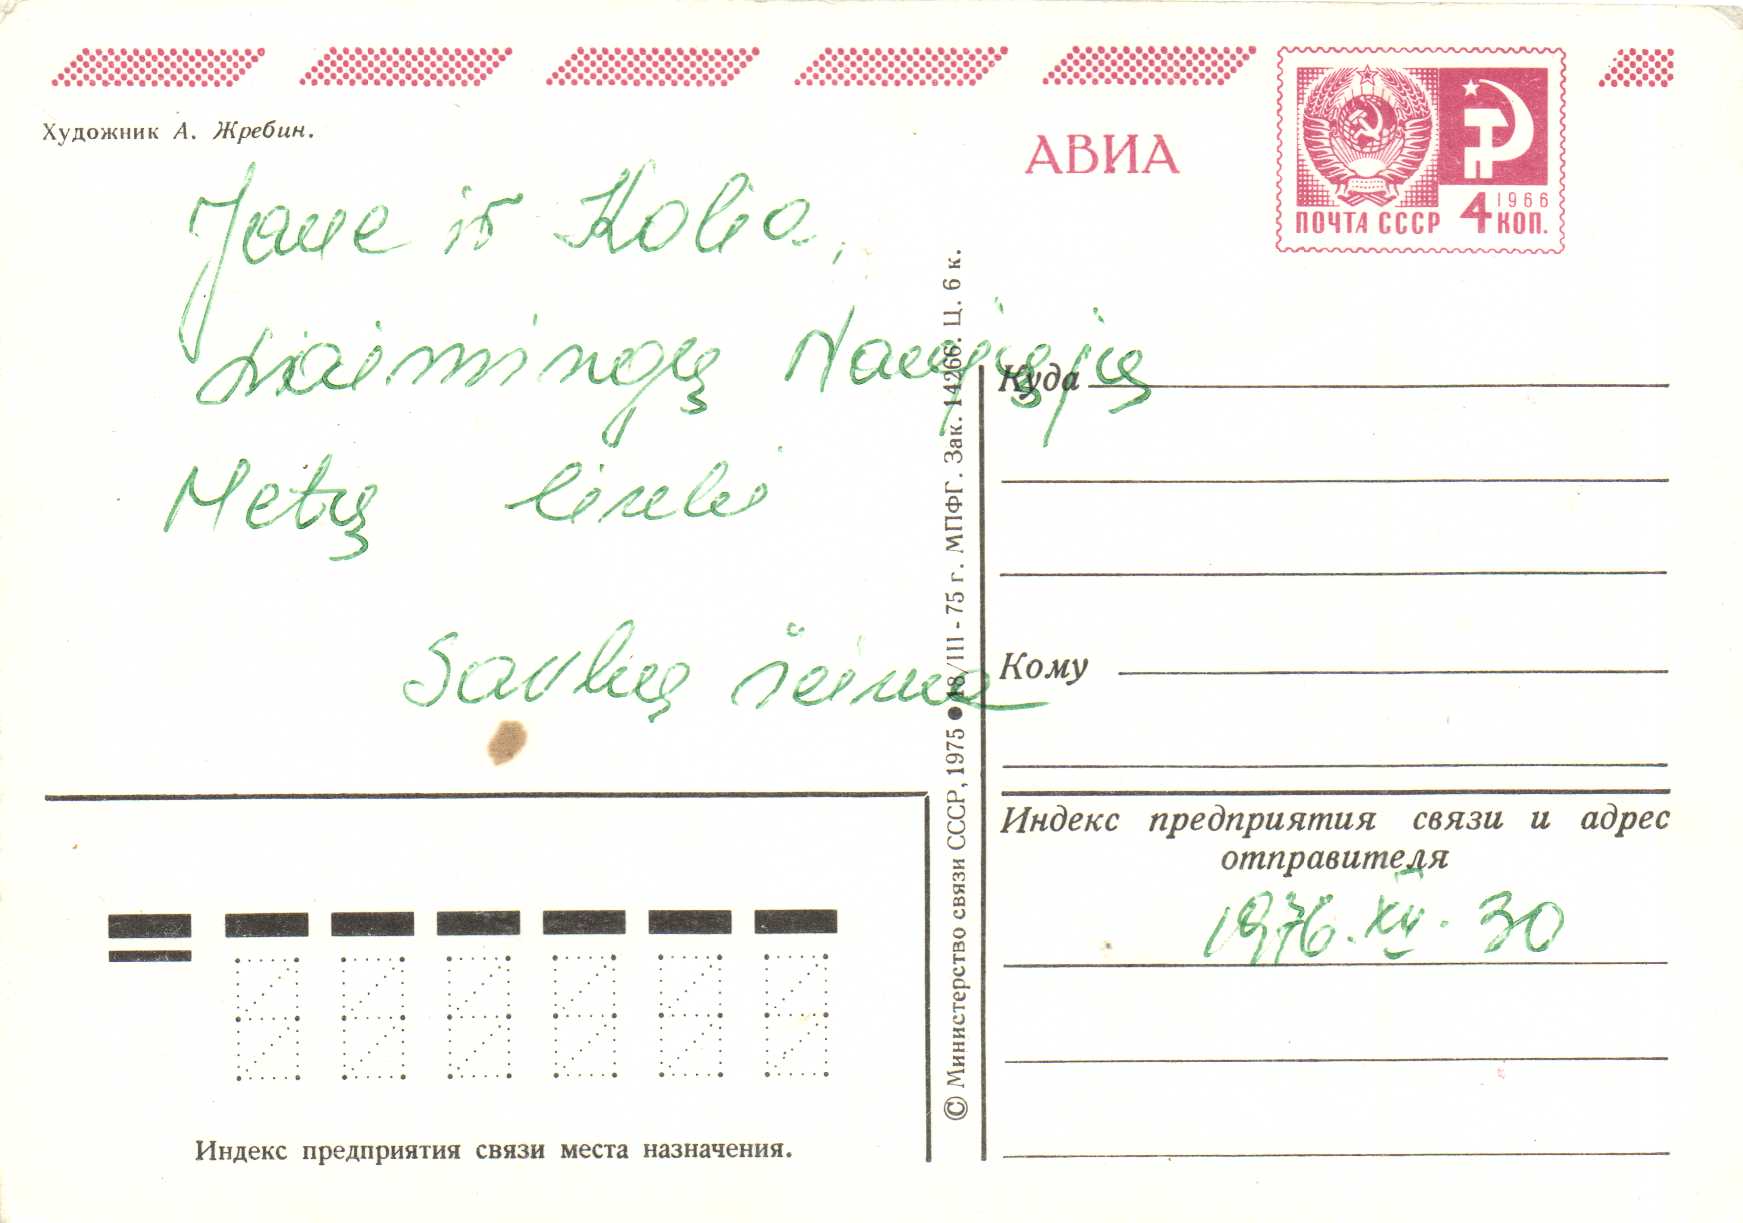 Художник А. Жребин.
АВИА
1966
ПОЧТА СССР 4 КОП.
Kolia,
Laimingų Naujųjų
Metų linki
šeima
Куда
Кому
Индекс предприятия связи и адрес
отправителя
1976.XII.30
© Министерство связи СССР, 1975 ● 18/III - 75 г. МПФГ. Зак. 14266. Ц. 6 к.
Индекс предприятия связи места назначения.